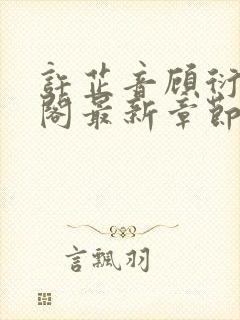 許芷音顧衍
閣最新章節
言飄羽